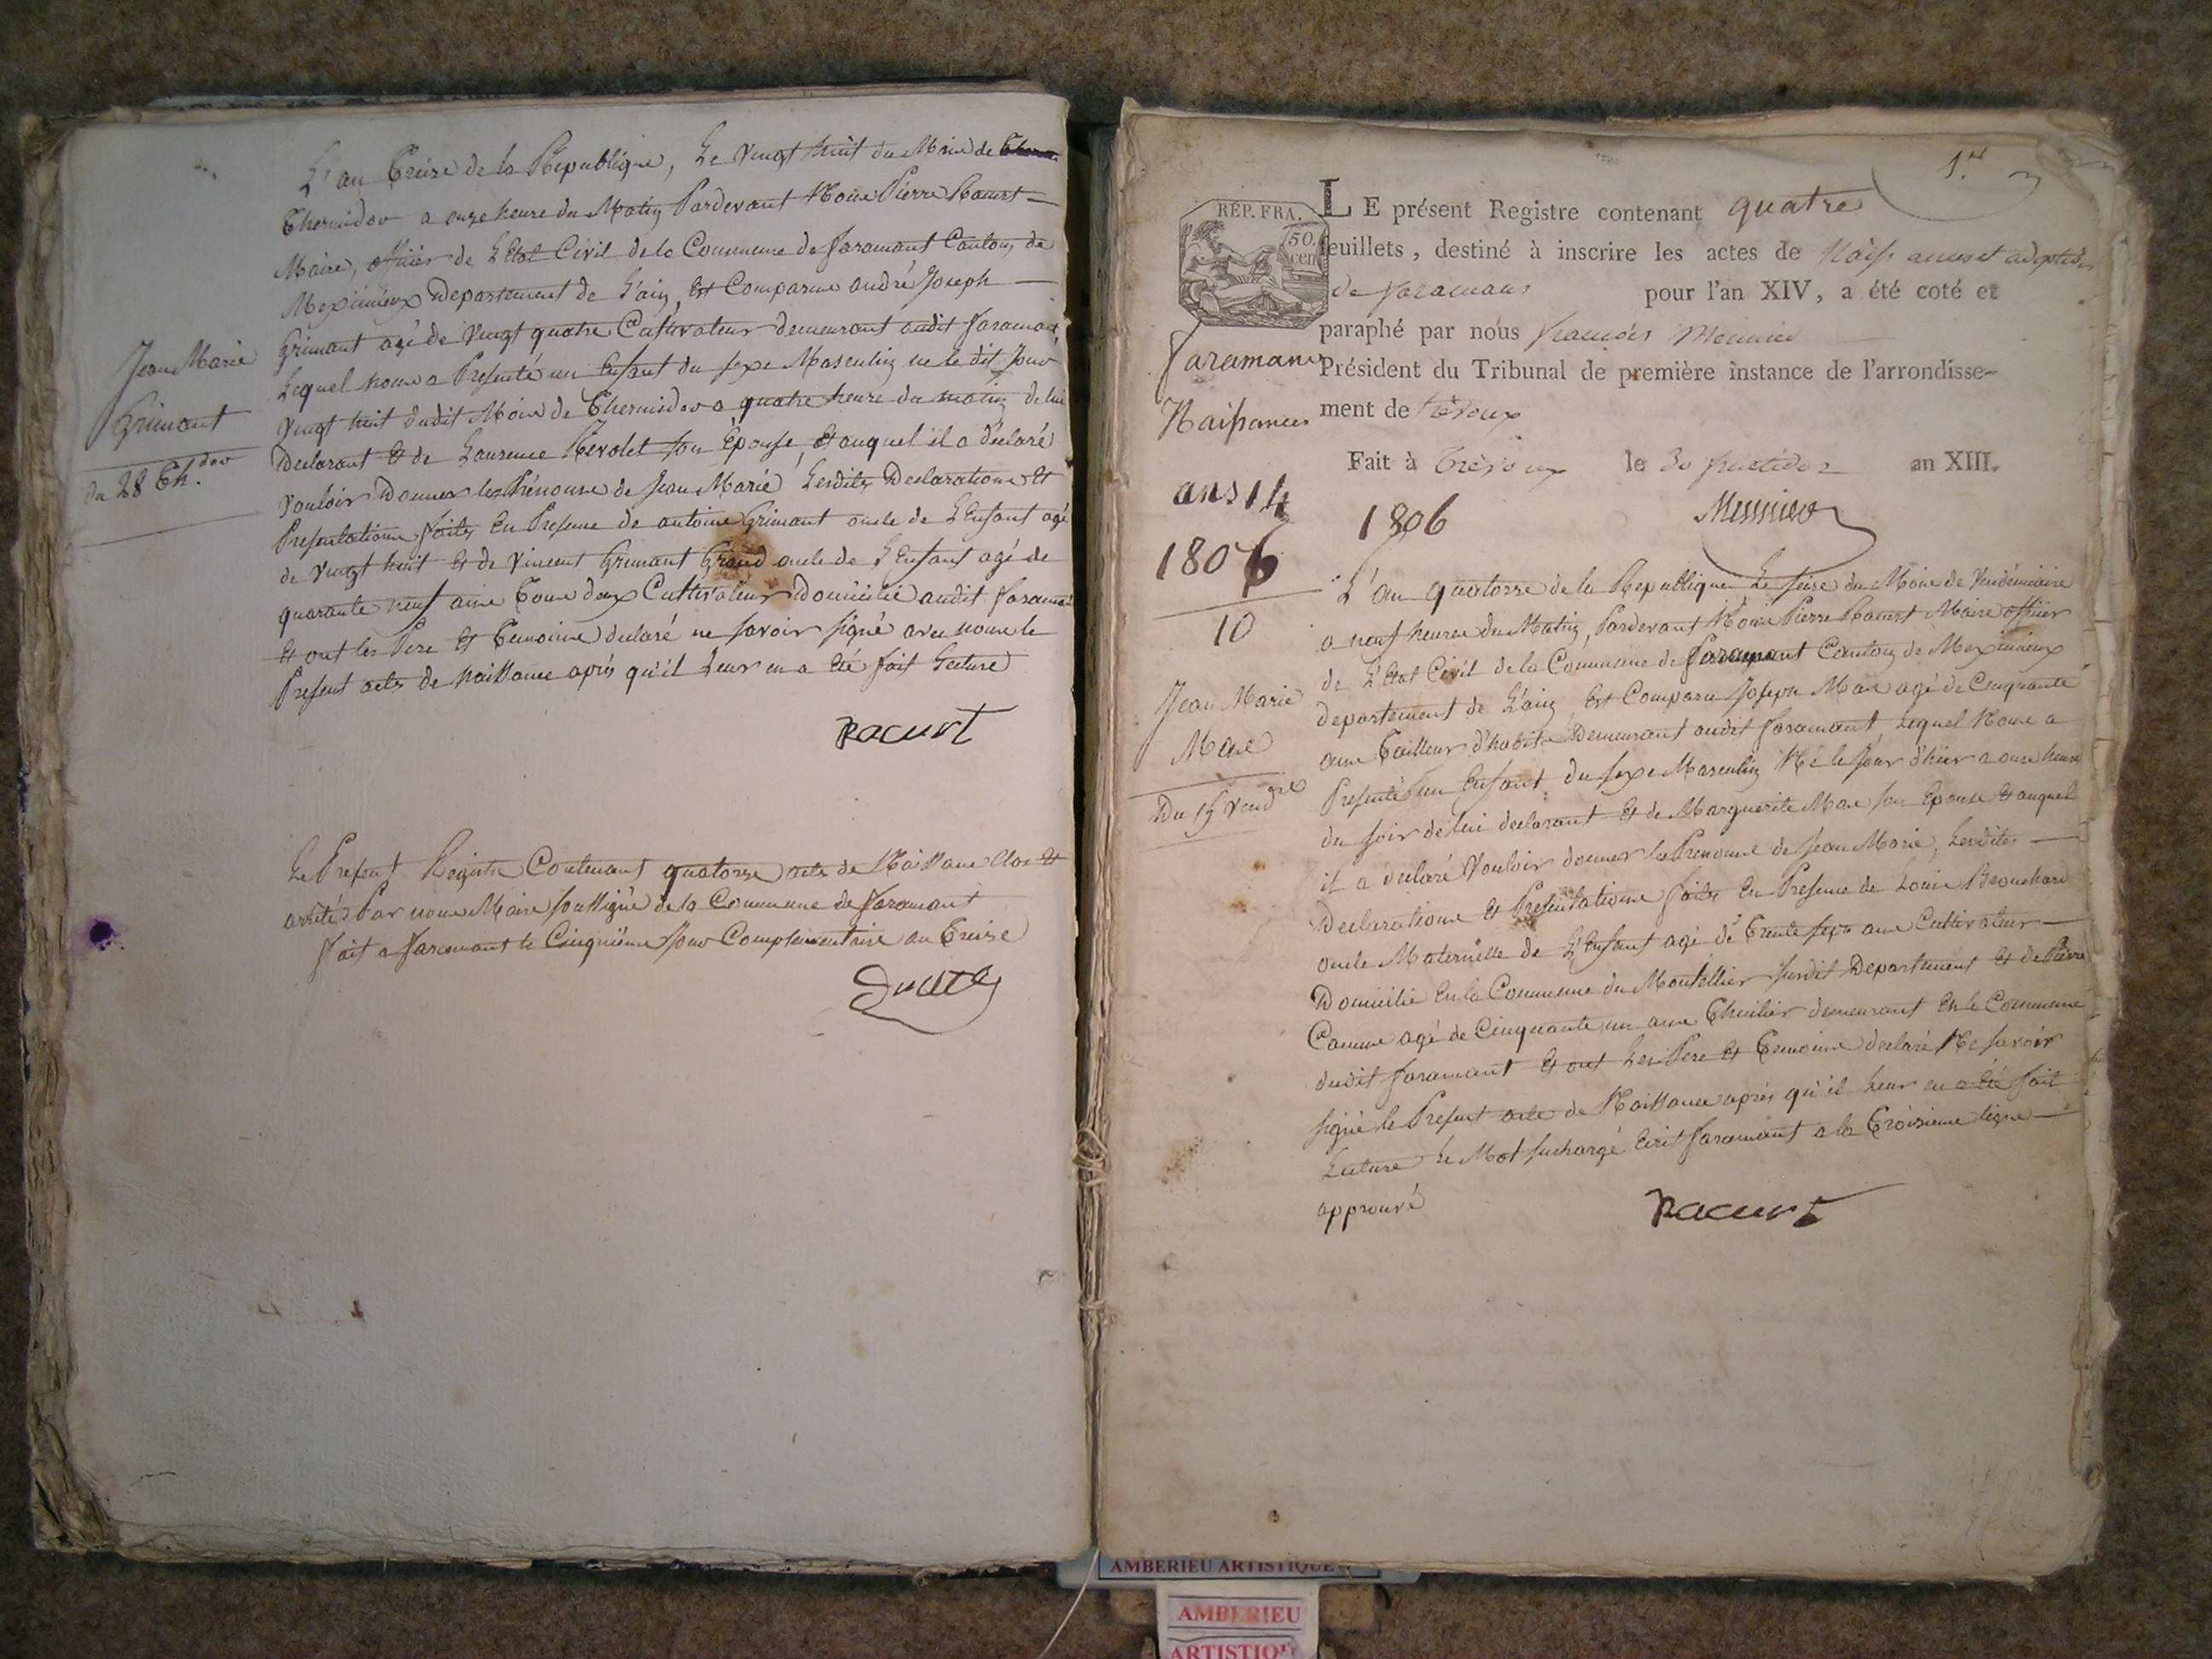 L'an Treize de la République, Le Vingt huit du Mois de
Thermidor a onze heure du Matin Pardevant Nous Pierre Racurt
Maire, officier de L'Etat Civil de la Commune de Faramant Canton de
Meximieux Departement de L'ain, Est Comparu andré Joseph
Grimant agé de Vingt quatre Cultivateur Demeurant audit Faramant
Lequel nous a Presenté un Enfant du sexe Masculin né le dit Jour
Vingt huit dudit Mois de Thermidor a quatre heure du matin de lui
Declarant Et de Laurence Nevolet son Epouse, Et auquel il a déclaré
Vouloir Donner les Prénoms de Jean Marie Lesdites Declarations Et
Presentations faites En Presence de antoine Grimant oncle de L'Enfant agé
de Vingt huit Et de Vincent Grimant Grand oncle de L'Enfant agé de
quarante neuf ans Tous deux Cultivateur Domicilié audit Faramant
Et ont les Pere Et Temoins declaré ne savoir signé avec nous le
Present acte de Naissance aprés qu'il Leur en a Eté fait Lecture
Racurt
Jean Marie
Grimant
du 28 Th.dor
Le Present Registre Contenant quatorze acte de Naissance Clos Et
arrêté Par nous Maire soussigné de la Commune de Faramant
fait a Faramant le Cinquième Jour Complementaire an Treize
1.er
RÉP. FRA.
50. cen
LE présent Registre contenant quatre
feuillets, destiné à inscrire les actes de Naiss ances et adoption
de faramans pour l'an XIV, a été coté et
paraphé par nous françois Monnier
Président du Tribunal de première instance de l'arrondisse-
ment de Trévoux
Fait à Trévoux le 30 fructidor an XIII.
Faramans
Naissances
ans 14
1806
10
1806
Jean Marie
Mare
Du 15 Vend.re
L'an quatorze de la Republique Le seize du Mois de Vendémiaire
a neuf heures du Matin, Pardevant Nous Pierre Racurt Maire officier
de L'Etat Civil de la Commune de Faramant Canton de Meximieux
departement de L'ain, Est Comparu Joseph Mare agé de Cinquante
ans Tailleur d'habits Demeurant audit Faramant Lequel Nous a
Presenté un Enfant du sexe Masculin Né le Jour d'hier a onze heure
du soir de lui declarant Et de Marguerite Mare son Epouse Et auquel
il a declaré Vouloir donner les Prenoms de Jean Marie, Lesdites
Declarations Et Presentations faites En Presence de Louis Brouchard
oncle Maternelle de L'Enfant agé de Trente sept ans Cultivateur
Domicilié En la Commune du Montellier susdit Departement Et de Pierre
Camme agé de Cinquante un ans demeurant En la Commune
dudit Faramant Et ont Les Pere Et Temoins declaré Ne savoir
signé le Present acte de Naissance aprés qu'il Leur en a Eté fait
Lecture Le Mot surchargé Ecrit Faramant a la Troisieme ligne
approuvé
Racurt
AMBERIEU ARTISTIQUE
AMBERIEU
ARTISTIQUE